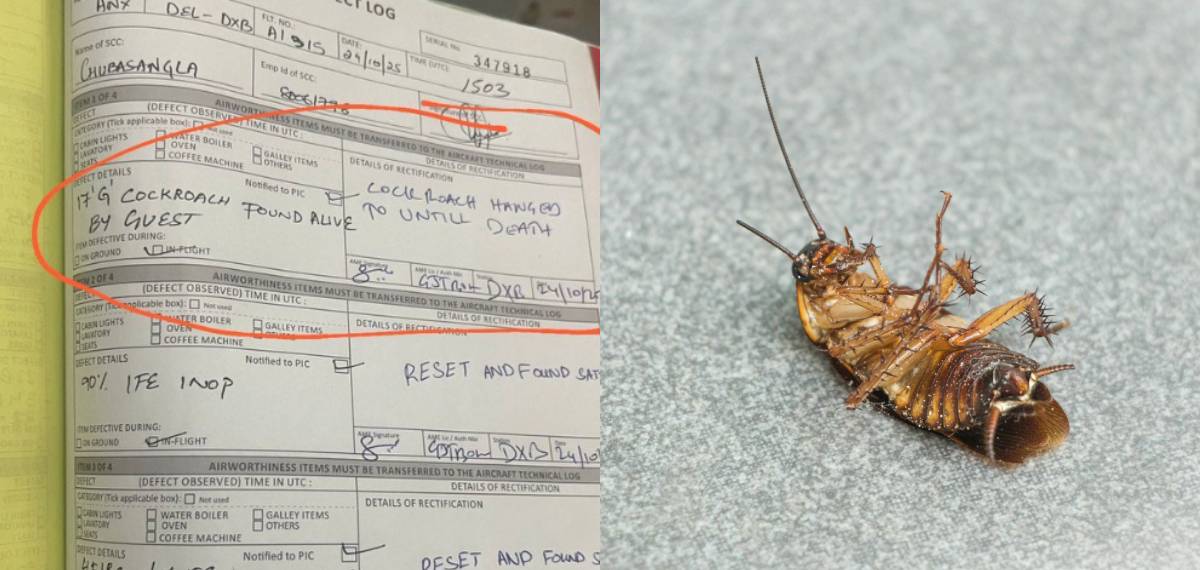 CT LOG
ANX DEL-DXB FLT. NO. AI 915 DATE: 24/10/25 SERIAL No. 347918
Name of SCC: CHUBASANGLA Emp Id of SCC: TIME (UTC): 1503
ITEM 1 OF 4 AIRWORTHINESS ITEMS MUST BE TRANSFERRED TO THE AIRCRAFT TECHNICAL LOG
DEFECT (DEFECT OBSERVED) TIME IN UTC : DETAILS OF RECTIFICATION
CATEGORY (Tick applicable box): Not used DETAILS OF RECTIFICATION
CABIN LIGHTS WATER BOILER GALLEY ITEMS
LAVATORY OVEN OTHERS
SEATS COFFEE MACHINE
DEFECT DETAILS Notified to PIC
17'G' COCKROACH FOUND ALIVE
BY GUEST
COCKROACH HANGED
TO UNTILL DEATH
ITEM DEFECTIVE DURING:
ON GROUND IN-FLIGHT
AME Signature AME Lic / Auth No: Station DXB 24/10/25
ITEM 2 OF 4 AIRWORTHINESS ITEMS MUST BE TRANSFERRED TO THE AIRCRAFT TECHNICAL LOG
(DEFECT OBSERVED) TIME IN UTC : DETAILS OF RECTIFICATION
CATEGORY (Tick applicable box): Not used DETAILS OF RECTIFICATION
CABIN LIGHTS WATER BOILER GALLEY ITEMS
LAVATORY OVEN
SEATS COFFEE MACHINE
DEFECT DETAILS Notified to PIC
90% IFE INOP RESET AND FOUND SAT
ITEM DEFECTIVE DURING:
ON GROUND IN-FLIGHT
AME Signature AME Lic / Auth No: Station DXB Date 24/10
ITEM 3 OF 4 AIRWORTHINESS ITEMS MUST BE TRANSFERRED TO THE AIRCRAFT TECHNICAL LOG
DEFECT (DEFECT OBSERVED) TIME IN UTC : DETAILS OF RECTIFICATION
CATEGORY (Tick applicable box): Not used DETAILS OF RECTIFICATION
CABIN LIGHTS WATER BOILER GALLEY ITEMS
LAVATORY OVEN OTHERS
SEATS COFFEE MACHINE
DEFECT DETAILS Notified to PIC
RESET AND FOUND S